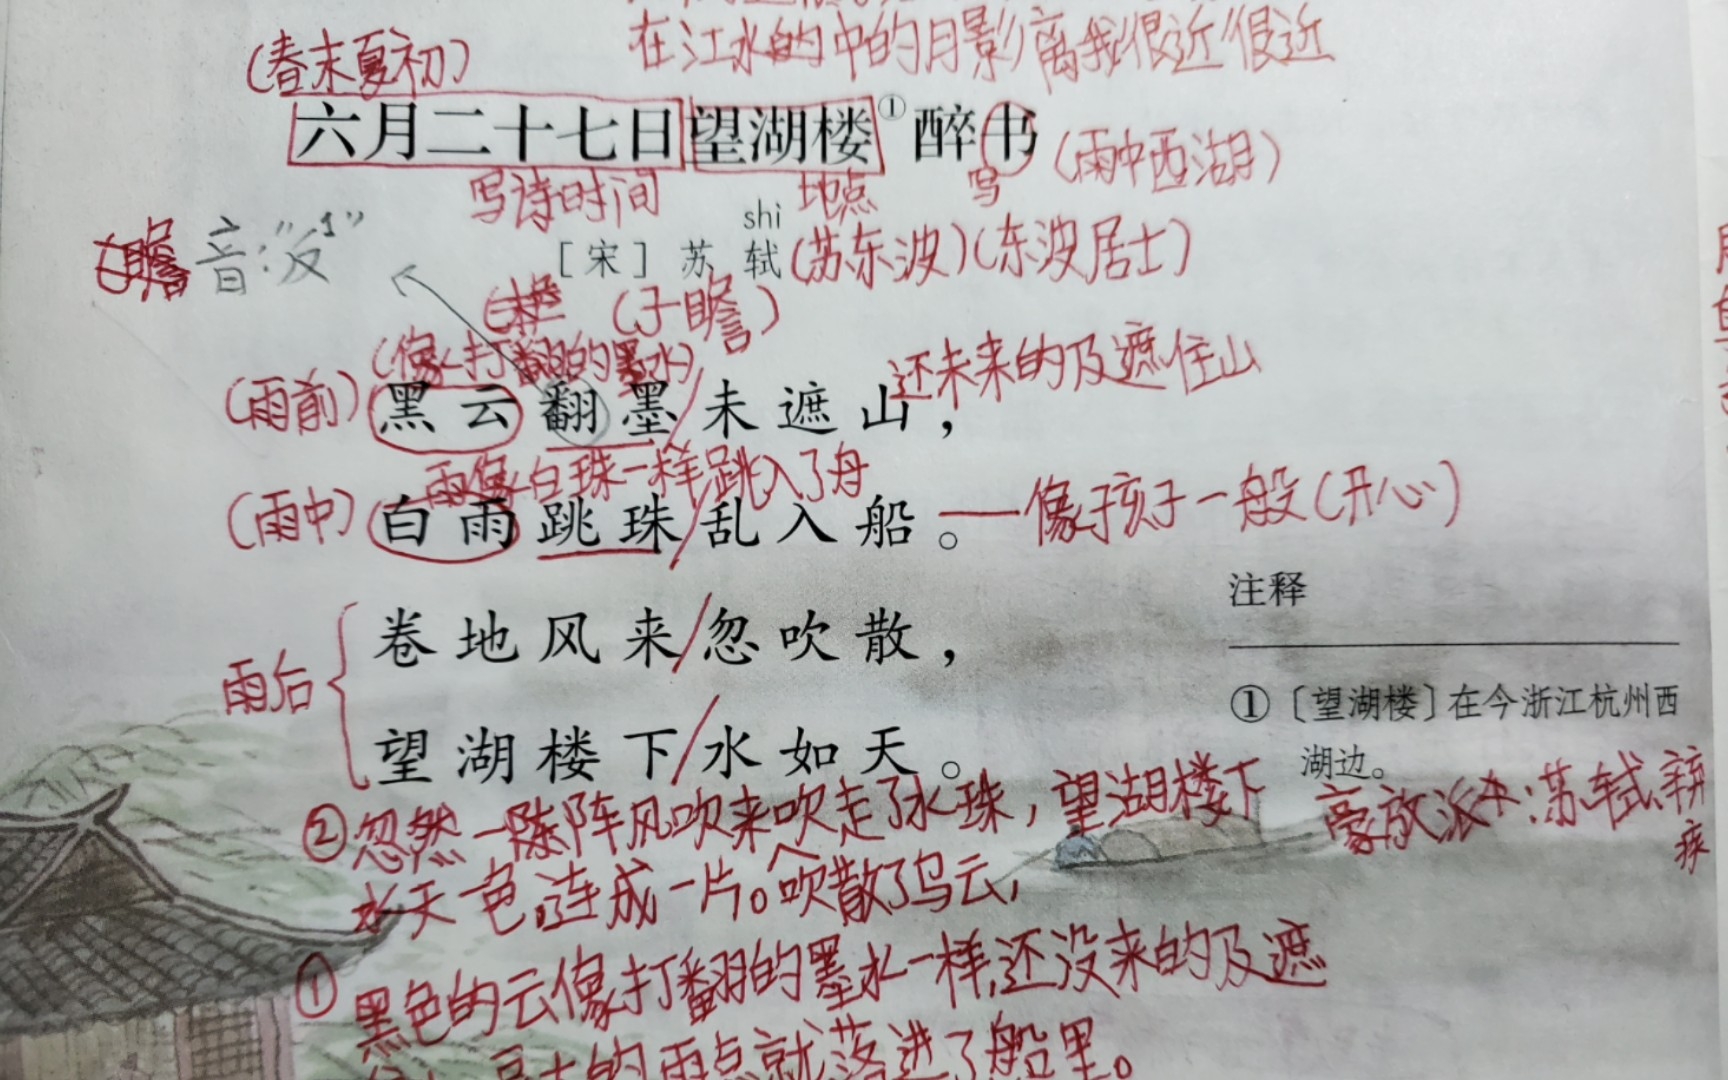 在江水的中的月影离我很近很近
(春末夏初)
六月二十七日望湖楼①醉书
(雨中西湖)
写诗时间 地点 写
shì
[宋] 苏轼(苏东波)(东波居士)
瞻 音:“反1”
(子瞻)
(像打翻的墨水)
还未来的及遮住山
(雨前)黑云翻墨未遮山，
雨像白珠一样跳入了舟
(雨中)白雨跳珠乱入船。——像孩子一般(开心)
注释
雨后
卷地风来忽吹散，
望湖楼下水如天。
①〔望湖楼〕在今浙江杭州西
湖边。
豪放派:苏轼、辛
疾
②忽然一阵风吹来吹走了水珠，望湖楼下
水天一色连成一片。吹散了乌云，
①黑色的云像打翻的墨水一样，还没来的及遮
的雨点就落进了船里。